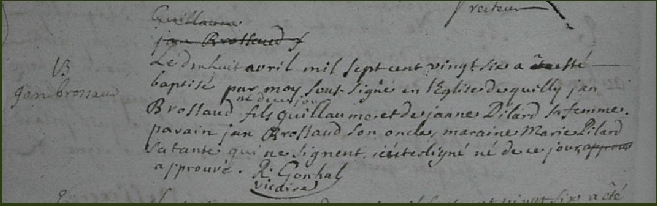 recteur
Guillaume
jan Brossaud f
B
jan brossaud
Le dixhuit avril mil sept cent vingt six a été esté
baptisé par moy sous signé en l'Eglise de quilly jan
né de ce jour
Brossaud fils Guillaume et de janne Dilard sa femme.
parain jan Brossaud son oncle, maraine Marie Dilard
sa tante qui ne signent, interligné né de ce jour approuvé
approuvé. R. Gonhal
vicaire
vingt six a été